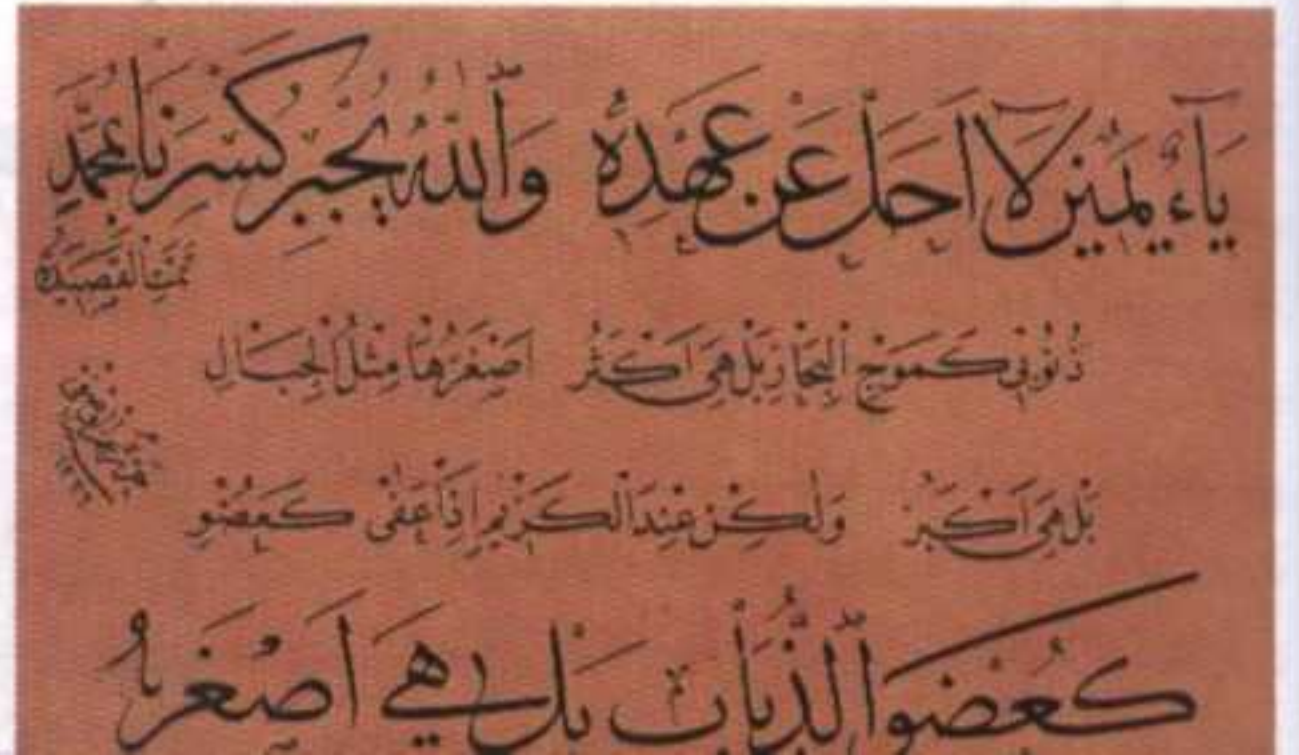 يَاءُ يَمِينٍ لَا اَحَلْ عَنْ عَهْدِهِ وَاللّٰهُ يُجْبِرُ كَسْرَنَا بِمُحَمَّدٍ
تَمَّتِ الْقَصِيدَةُ
ذُنُوبِي كَمَوْجِ الْبِحَارِ بَلْ هِيَ اَكْثَرُ اَصْغَرُهَا مِثْلُ الْجِبَالِ
بَلْ هِيَ اَكْبَرُ وَلٰكِنْ عِنْدَ الْكَرِيمِ اِذَا عَفٰى كَعُضْوِ
كَعُضْوِ الذُّبَابِ بَلْ هِيَ اَصْغَرُ